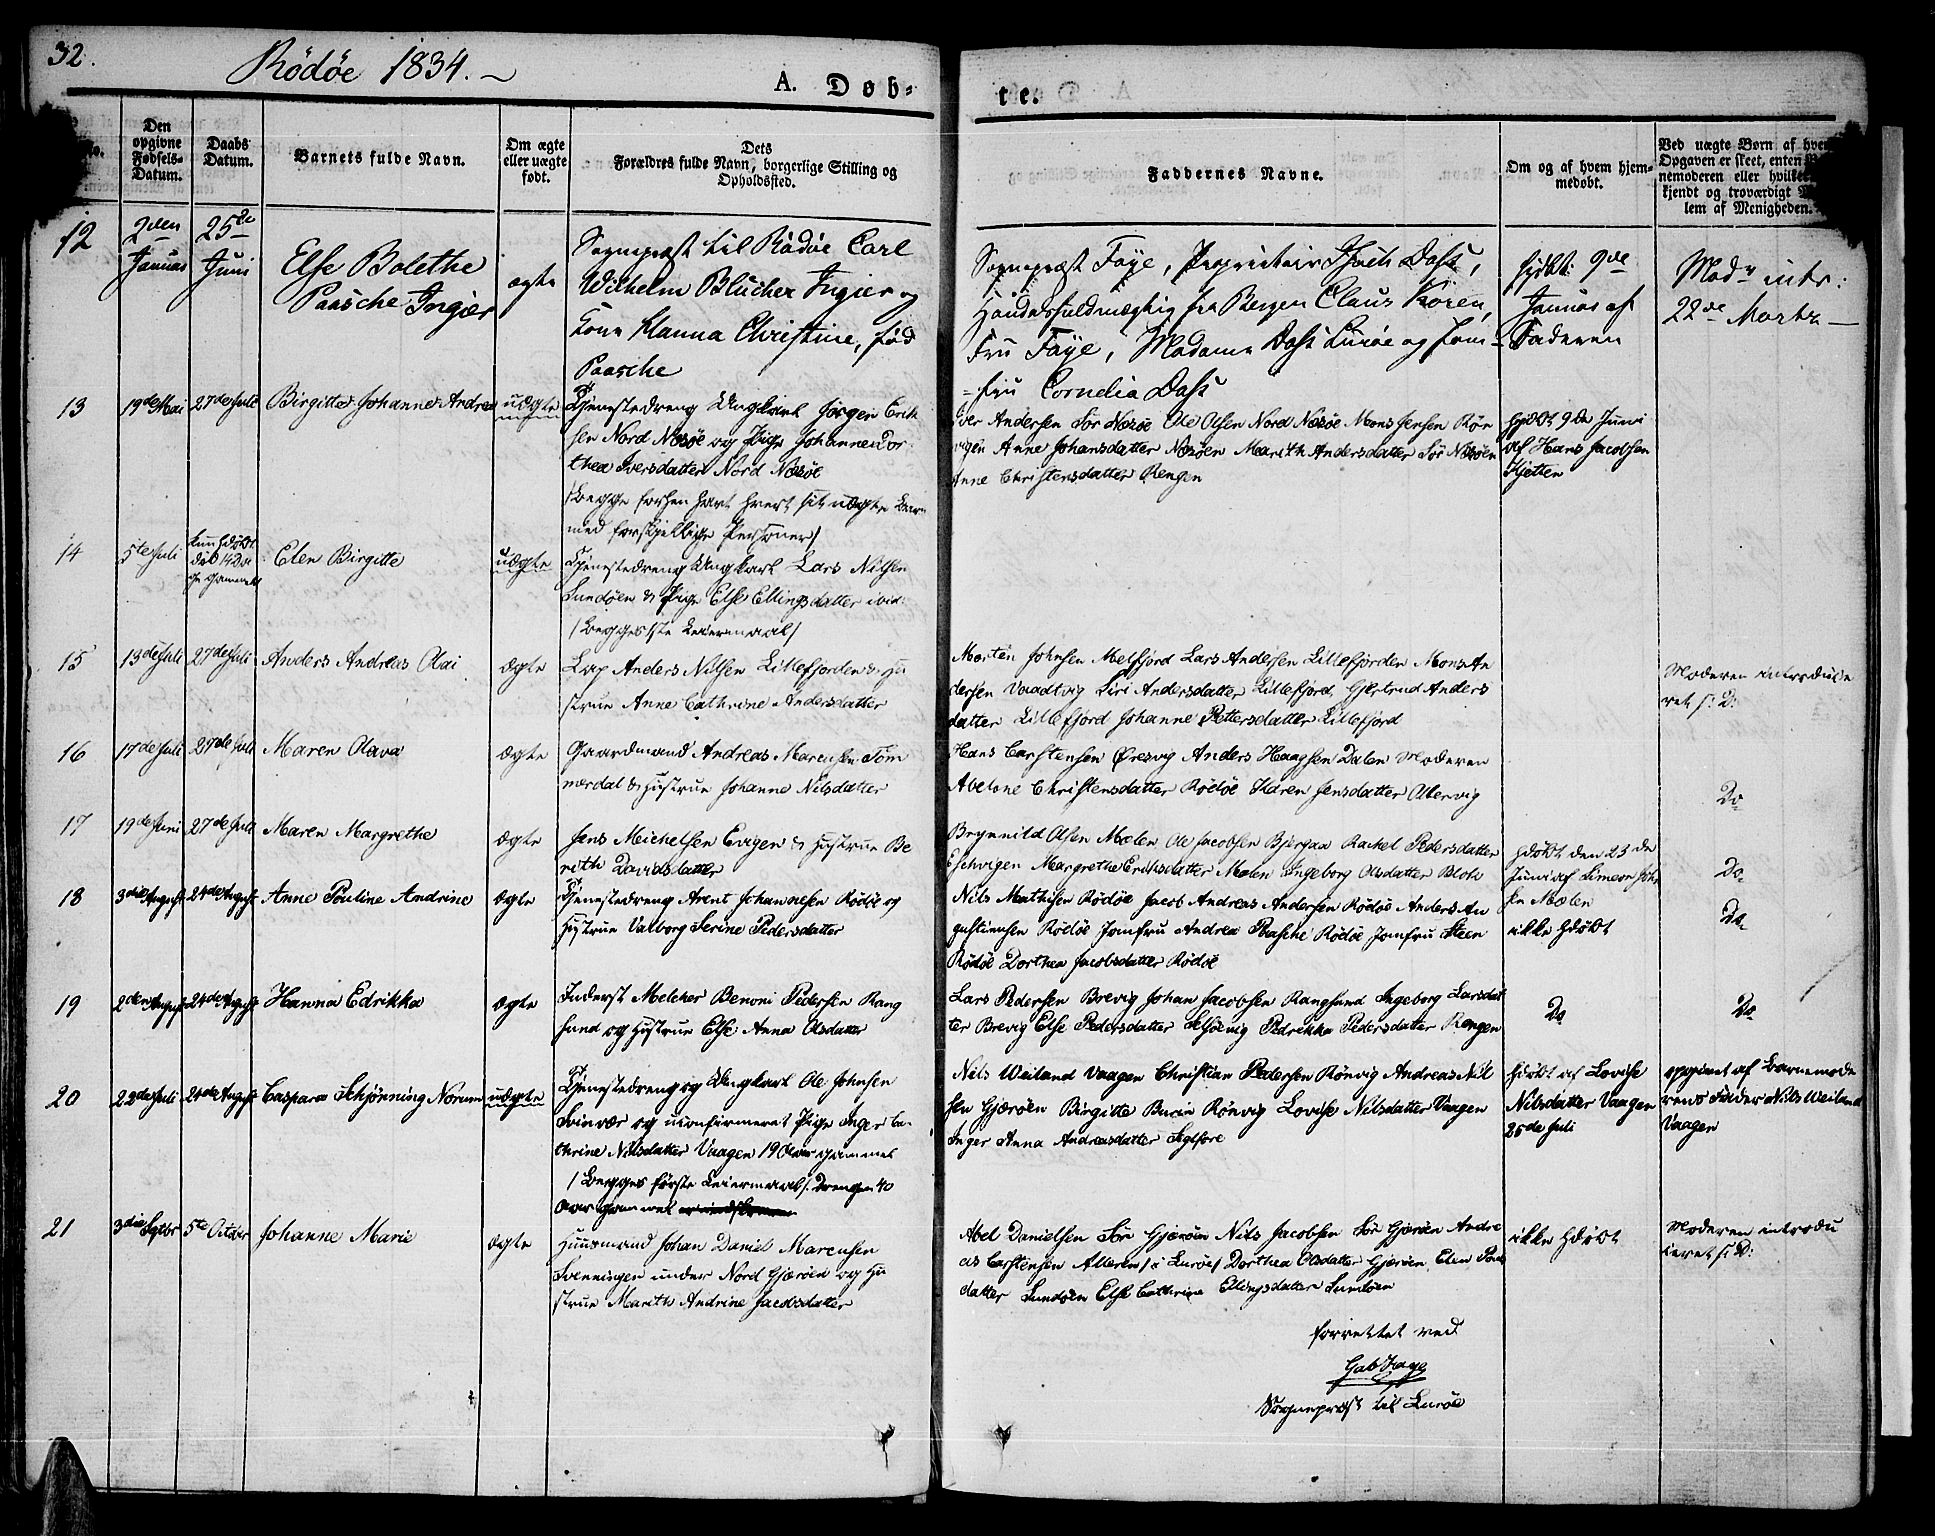 32.
Rödöe 1834.
A. Døb-
te.
No.
Den opgivne Fødsels-Datum.
Daabs Datum.
Barnets fulde Navn.
Om ægte eller uægte født.
Dets Forældres fulde Navn, borgerlige Stilling og Opholdssted.
Faddernes Navne.
Om og af hvem hjem-medøbt.
Ved uægte Børn af hvem
Opgaven er skeet, enten
nemoderen eller hvilket
kjendt og troværdigt
lem af Menigheden.
12
2den Januar
25de Juni
Else Bolethe
Paasche Ingier
ægte
Sognepræst til Rödöe Carl
Wilhelm Blücher Ingier og
Kone Hanna Christine, född
Paasche
Sognepræst Faye, Proprietair Isach Dass,
Handelsfuldmægtig fra Bergen Claus Koren,
Fru Faye, Madame Dass Luröe og Jom-
=fru Cornelia Dass
hjdöbt 9de
Januar af
Faderen
Modr intr:
22de Marts
13
19de Mai
27de Juli
Birgitte Johanne Andrea
uægte
Tjenestedreng Ungkarl Jörgen Erik
sen Nord Næsöe og Pige Johanne Dor
thea Iversdatter Nord Næsöe
/Begge forhen havt hvert sit uægte Barn
med forskjellige Personer/
Iver Andersen Sör Næsöe Ole Olsen Nord Næsöe Mons Jensen Rön
vigen Anne Johansdatter Næsöen Marith Andersdatter Sör Næsöen
Anne Christensdatter Rengen
hjdöbt 9de Juni
af Hans Jacobsen
14
5te Juli
kun hdöbt
död 14 Da
ge gammel
Elen Birgitte
uægte
Tjenestedreng Ungkarl Lars Nilsen
Sundöen & Pige Else Ellingsdatter ibid:
/Begges 1ste Leiermaal/
15
13de Juli
27de Juli
Anders Andreas Olai
ægte
Lap Anders Nilsen Lillefjorden & Hu
strue Anne Cathrine Andersdatter
Morten Johnsen Melfjord Lars Andersen Lillefjorden Mons An
dersen Vaadtvig Siri Andersdatter Lillefjord, Gjertrud Anders
datter Lillefjord Johanne Pettersdatter Lillefjord
Moderen introduce
ret s: D:
16
17de Juli
27de Juli
Maren Olava
ægte
Gaardmand Andreas Marcusen Töm
merdal & Hustrue Johanne Nilsdatter
Hans Carstensen Öresvig Anders Haagsen Dalen Moderen
Abelone Christensdatter Rödöe Karen Jensdatter Oldervig
Do
17
19de Juni
27de Juli
Maren Margrethe
ægte
Jens Michelsen Evigen & Hustrue Be
rith Davidsdatter
Brynnild Olsen Mælen Ole Jacobsen Bjergaa Rachel Pedersdatter
Eschvigen Margrethe Eriksdatter Mælen Ingeborg Olsdatter
hdöbt den 23de
Juni af Simeon Joh
sen Mælen
Do
18
3die August
24de August
Anne Pouline Andrine
ægte
Tjenestedreng Arent Johannesen Rödöe og
Hustrue Valborg Serine Pedersdatter
Nils Mathisen Rödöe Jacob Andreas Andersen Rödöe Anders Au
gustinusen Rödöe Jomfru Andrea Paasche Rödöe Jomfru Steen
Rödöe Dorthea Jacobsdatter Rödöe
ikke hdöbt
Do
19
2den August
24de August
Hanna Edrikka
ægte
Inderst Melcher Benoni Pedersen Rang
sund og Hustrue Else Anna Olsdatter
Lars Pedersen Brevig Johan Jacobsen Rangsund Ingeborg Larsdat
ter Brevig Else Pedersdatter Selsöevig Pedrikka Pedersdatter Rengen
Do
Do
20
22de Juli
24de August
Caspara Schjönning Norum
uægte
Tjenestedreng og Ungkarl Ole Johnsen
Svinvær og uconfirmeret Pige Inger Ca-
thrine Nilsdatter Vaagen 19 Aar gammel
/Begges förste Leiermaal/. Drengen 40
Aar gammel
Nils Weiland Vaagen Christian Pedersen Rönvig Andreas Nil
sen Gjeröen Birgitte Rönvig Lovise Nilsdatter Vaagen
Inger Anna Andreasdatter Seglfore
hdöbt af Lovise
Nilsdatter Vaagen
25de Juli
opgivet af Barnemode
rens Fader Nils Weiland
Vaagen
21
3die Septbr
5te October
Johanne Marie
ægte
Huusmand Johan Daniel Marcusen
Svenningen under Nord Gjeröen og Hu
strue Marith Andrine Jacobsdatter
Abel Danielsen Sör Gjeröen Nils Jacobsen Sör Gjeröen Andre
as Carstensen Alderen /i Luröe/ Dorthea Olsdatter Gjeröen Elen Pouls
datter Sundöen Else Cathrine Ellingsdatter Sundöen
ikke hdöbt
Moderen introdu
ceret s: D:
forrettet ved
Gab Faye
Sognepræst til Luröe